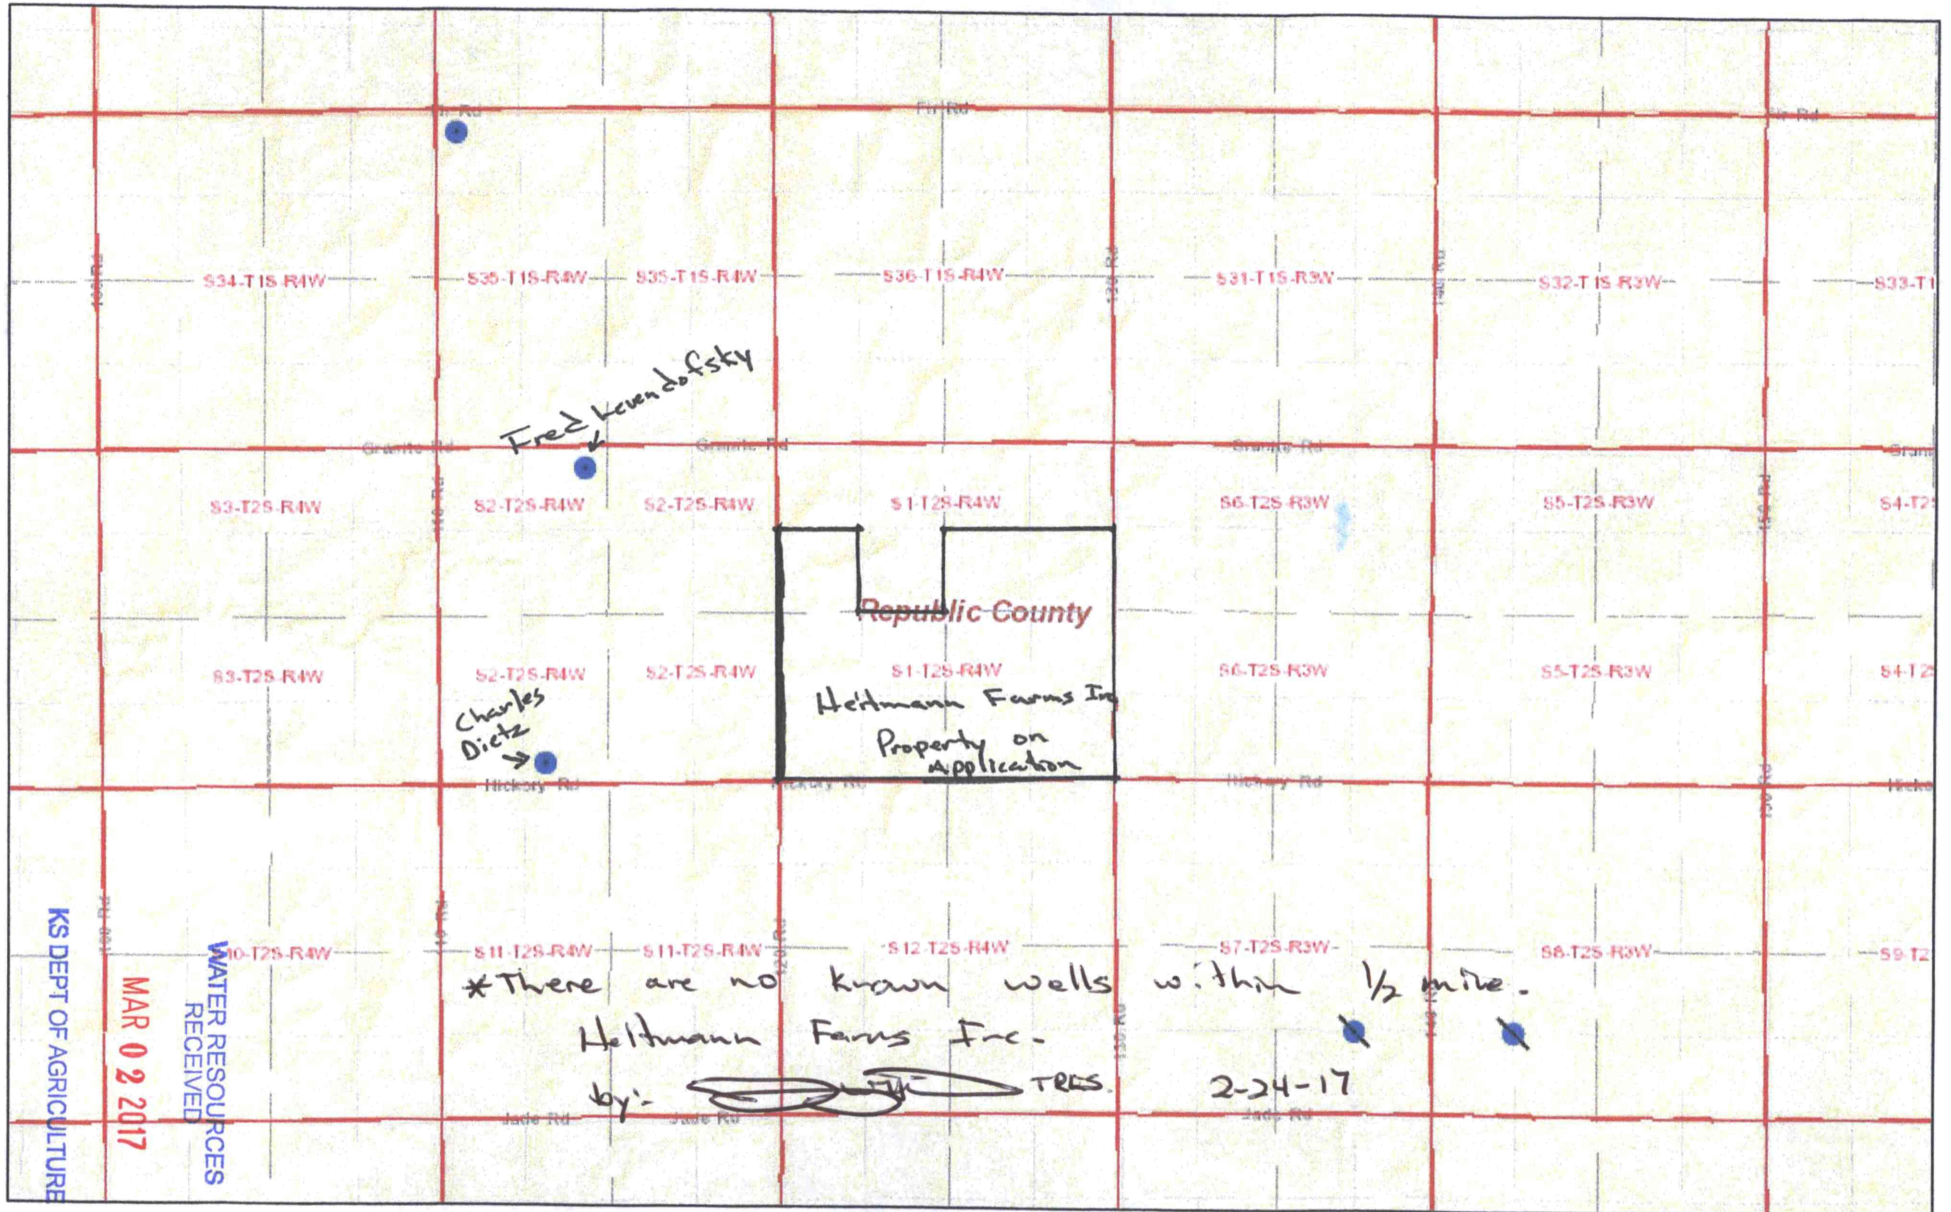 Fir Rd
Fir Rd
Fir Rd
S34-T1S-R4W
S35-T1S-R4W
S35-T1S-R4W
S36-T1S-R4W
130 Rd
S31-T1S-R3W
140 Rd
S32-T1S-R3W
S33-T1
Fred Levendofsky
Granite Rd
Granite Rd
Granite Rd
Grani
S3-T2S-R4W
S2-T2S-R4W
S2-T2S-R4W
S1-T2S-R4W
S6-T2S-R3W
S5-T2S-R3W
150 Rd
S4-T2S
Republic County
S3-T2S-R4W
S2-T2S-R4W
S2-T2S-R4W
S1-T2S-R4W
S6-T2S-R3W
S5-T2S-R3W
S4-T2S
Heitmann Farms Inc
Property on
Application
Charles
Dietz
Hickory Rd
Hickory Rd
Hickory Rd
Hicko
150 Rd
100 Rd
110 Rd
120 Rd
10-T2S-R4W
S11-T2S-R4W
S11-T2S-R4W
S12-T2S-R4W
S7-T2S-R3W
S8-T2S-R3W
S9-T2
*There are no known wells within 1/2 mile.
Heitmann Farms Inc.
130 Rd
by: TRES. 2-24-17
Jade Rd
Jade Rd
Jade Rd
WATER RESOURCES
RECEIVED
MAR 02 2017
KS DEPT OF AGRICULTURE